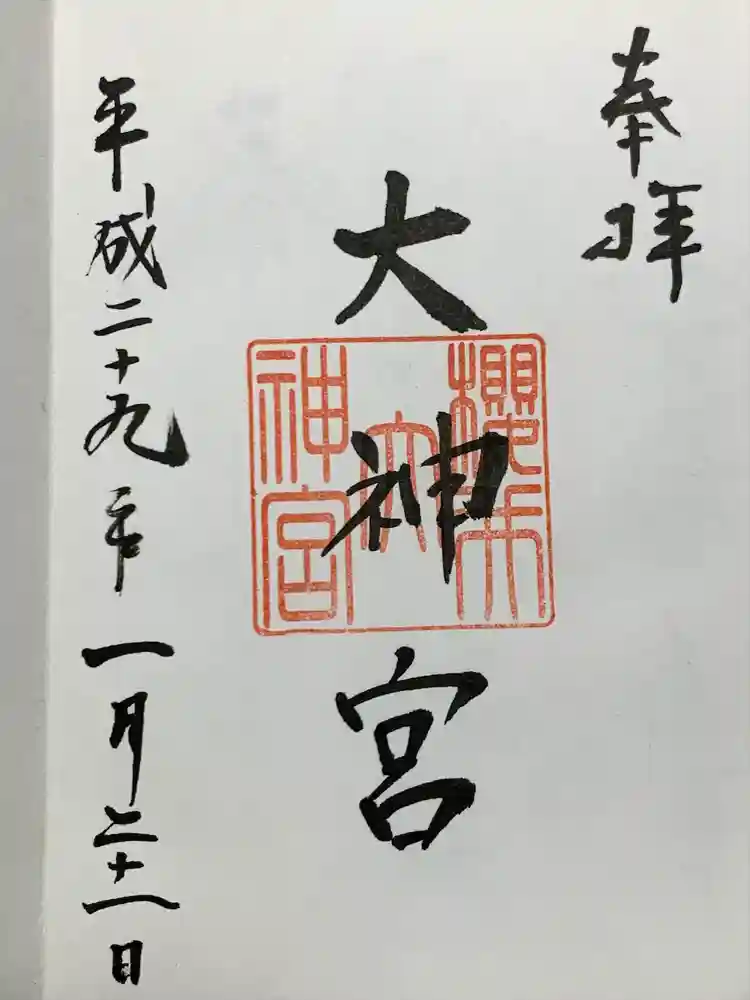 奉拝
大神宮
櫻木
大
神宮
平成二十九年一月二十一日